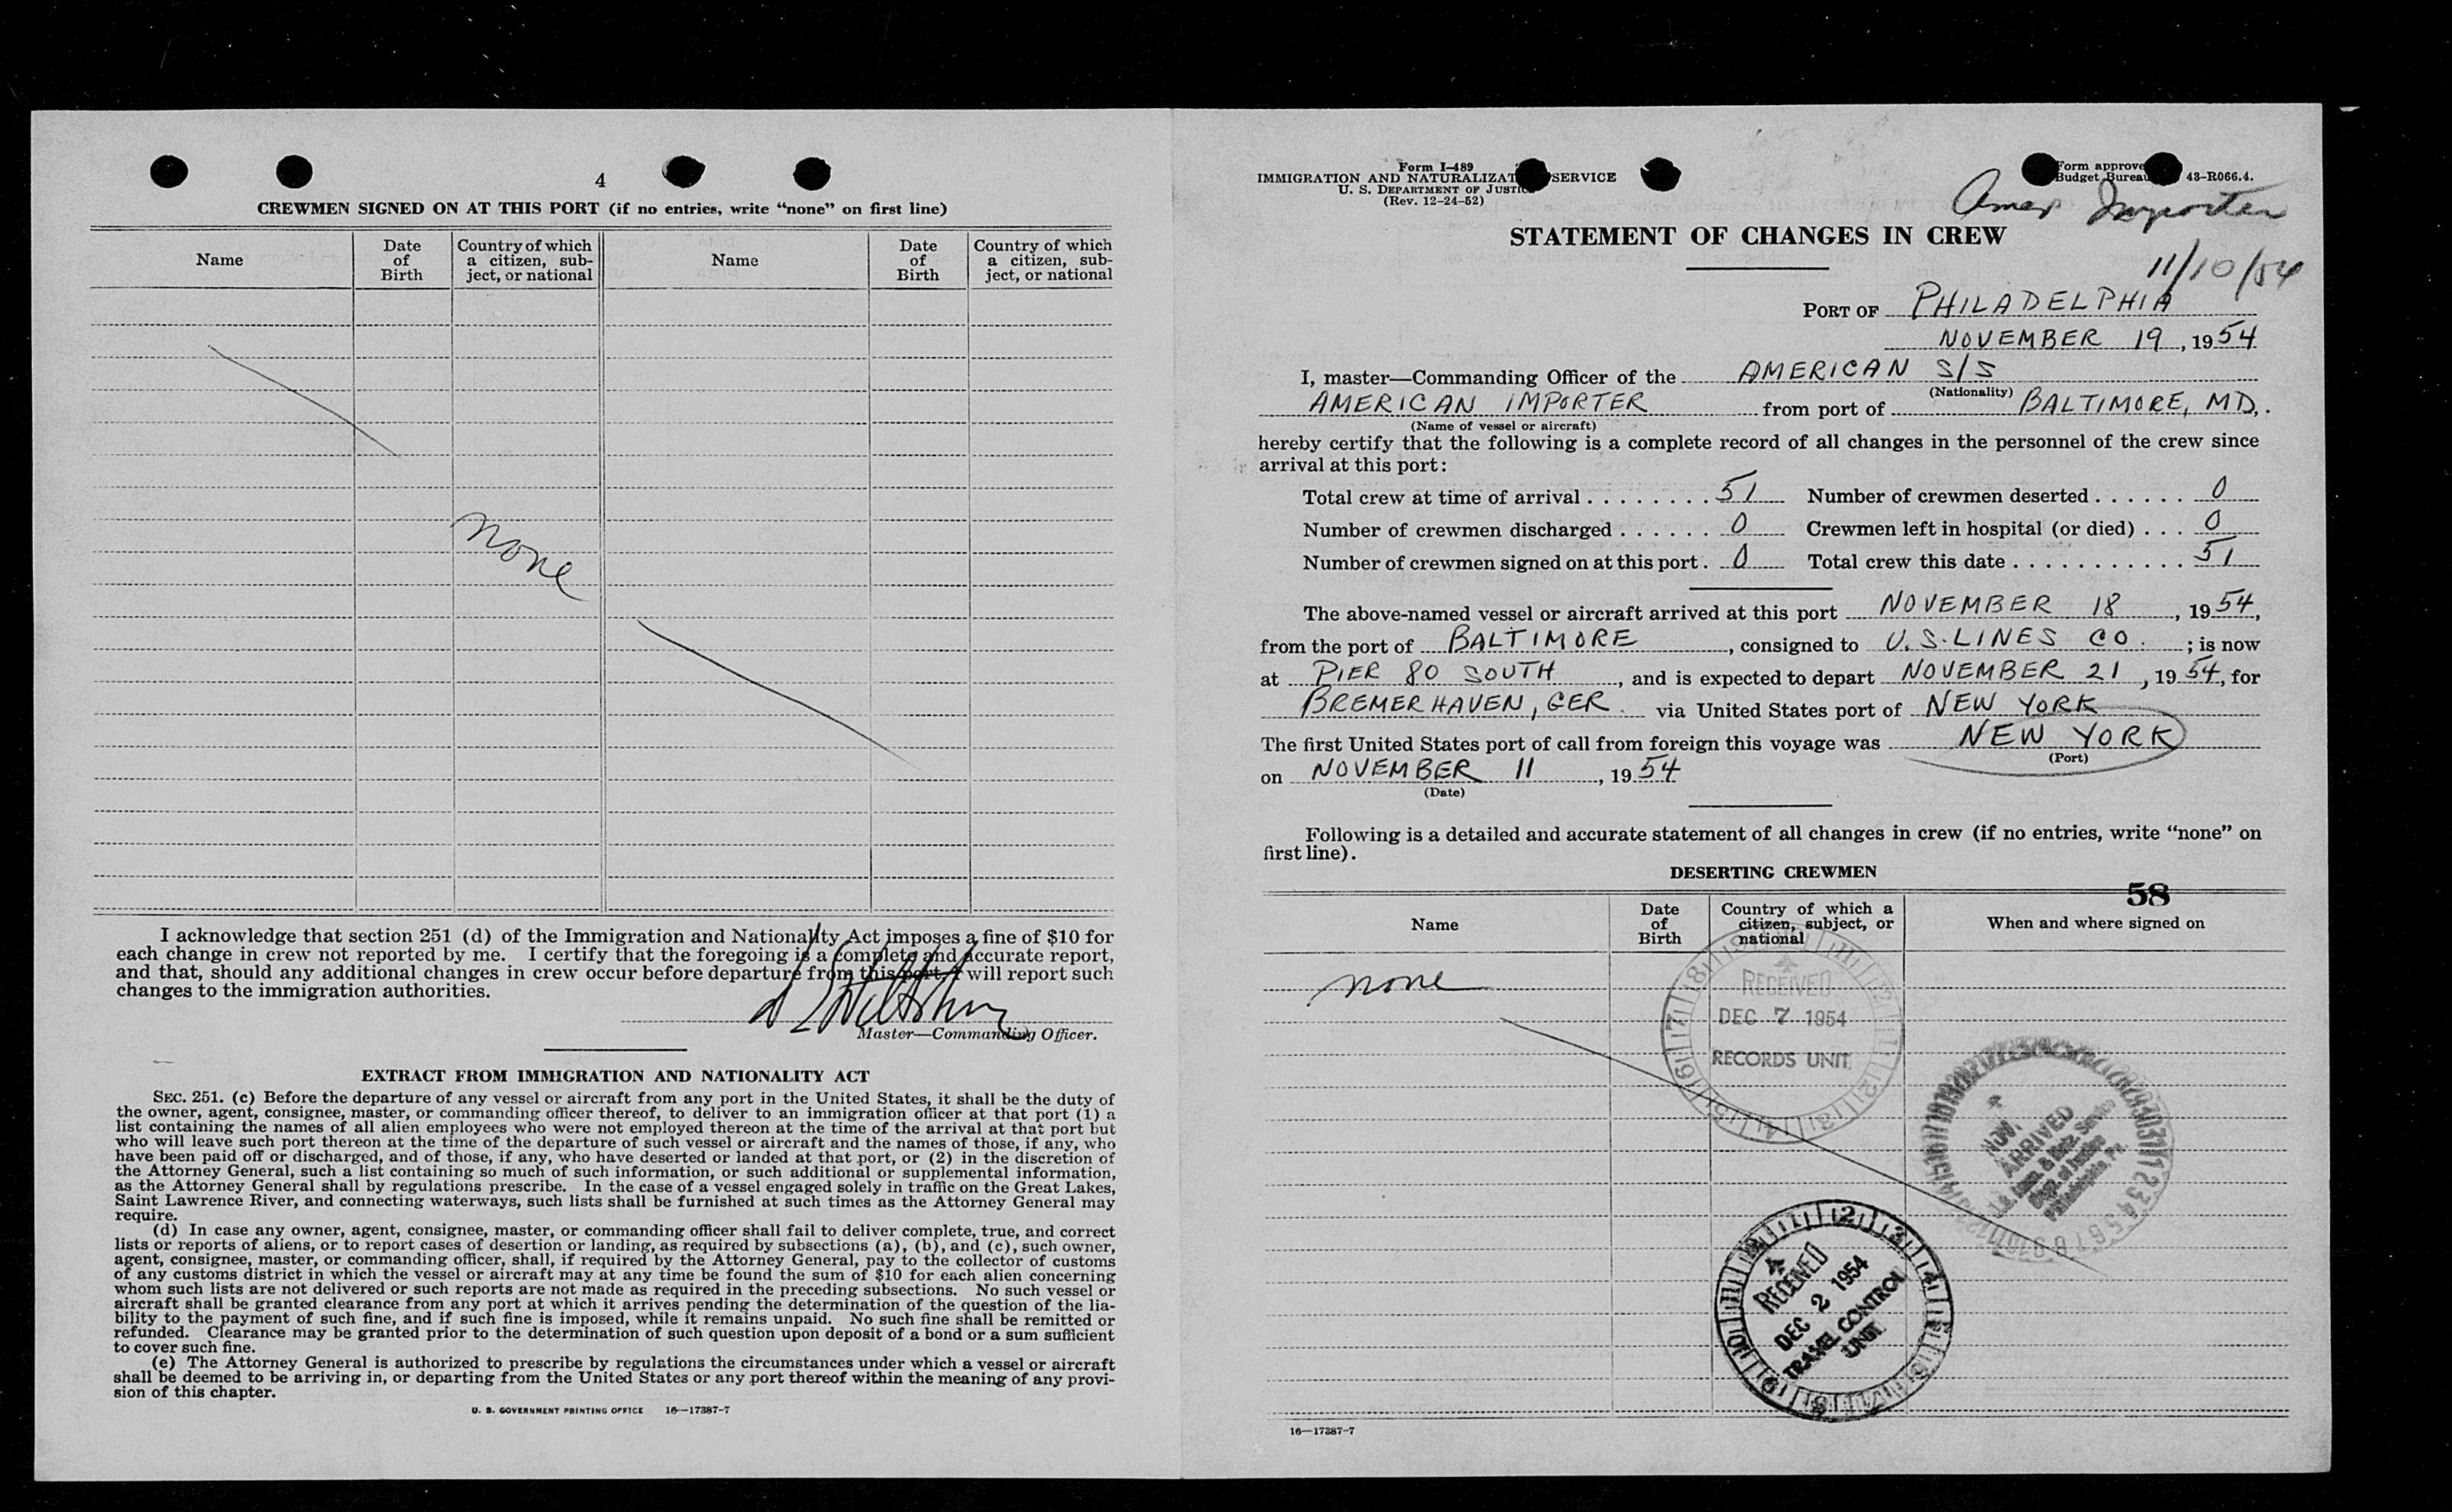 4
CREWMEN SIGNED ON AT THIS PORT (if no entries, write “none” on first line)
Name
Date of Birth
Country of which a citizen, subject, or national
Name
Date of Birth
Country of which a citizen, subject, or national
none
I acknowledge that section 251 (d) of the Immigration and Nationality Act imposes a fine of $10 for
each change in crew not reported by me. I certify that the foregoing is a complete and accurate report,
and that, should any additional changes in crew occur before departure from this port, I will report such
changes to the immigration authorities.
Master—Commanding Officer.
EXTRACT FROM IMMIGRATION AND NATIONALITY ACT
SEC. 251. (c) Before the departure of any vessel or aircraft from any port in the United States, it shall be the duty of
the owner, agent, consignee, master, or commanding officer thereof, to deliver to an immigration officer at that port (1) a
list containing the names of all alien employees who were not employed thereon at the time of the arrival at that port but
who will leave such port thereon at the time of the departure of such vessel or aircraft and the names of those, if any, who
have been paid off or discharged, and of those, if any, who have deserted or landed at that port, or (2) in the discretion of
the Attorney General, such a list containing so much of such information, or such additional or supplemental information,
as the Attorney General shall by regulations prescribe. In the case of a vessel engaged solely in traffic on the Great Lakes,
Saint Lawrence River, and connecting waterways, such lists shall be furnished at such times as the Attorney General may
require.
(d) In case any owner, agent, consignee, master, or commanding officer shall fail to deliver complete, true, and correct
lists or reports of aliens, or to report cases of desertion or landing, as required by subsections (a), (b), and (c), such owner,
agent, consignee, master, or commanding officer, shall, if required by the Attorney General, pay to the collector of customs
of any customs district in which the vessel or aircraft may at any time be found the sum of $10 for each alien concerning
whom such lists are not delivered or such reports are not made as required in the preceding subsections. No such vessel or
aircraft shall be granted clearance from any port at which it arrives pending the determination of the question of the lia-
bility to the payment of such fine, and if such fine is imposed, while it remains unpaid. No such fine shall be remitted or
refunded. Clearance may be granted prior to the determination of such question upon deposit of a bond or a sum sufficient
to cover such fine.
(e) The Attorney General is authorized to prescribe by regulations the circumstances under which a vessel or aircraft
shall be deemed to be arriving in, or departing from the United States or any port thereof within the meaning of any provi-
sion of this chapter.
U. S. GOVERNMENT PRINTING OFFICE 16—17387-7
Form I-489
IMMIGRATION AND NATURALIZAT SERVICE
U. S. DEPARTMENT OF JUSTI
(Rev. 12-24-52)
Form approve
Budget Bureau 43-R066.4.
Amer Importer
11/10/54
STATEMENT OF CHANGES IN CREW
PORT OF PHILADELPHIA
NOVEMBER 19, 1954
I, master—Commanding Officer of the AMERICAN S/S
(Nationality)
AMERICAN IMPORTER from port of BALTIMORE, MD,.
(Name of vessel or aircraft)
hereby certify that the following is a complete record of all changes in the personnel of the crew since
arrival at this port:
Total crew at time of arrival 51 Number of crewmen deserted 0
Number of crewmen discharged 0 Crewmen left in hospital (or died) 0
Number of crewmen signed on at this port 0 Total crew this date 51
The above-named vessel or aircraft arrived at this port NOVEMBER 18, 1954,
from the port of BALTIMORE, consigned to U.S. LINES CO.; is now
at PIER 80 SOUTH, and is expected to depart NOVEMBER 21, 1954, for
BREMERHAVEN, GER. via United States port of NEW YORK
The first United States port of call from foreign this voyage was NEW YORK
(Port)
on NOVEMBER 11, 1954
(Date)
Following is a detailed and accurate statement of all changes in crew (if no entries, write “none” on
first line).
DESERTING CREWMEN
58
Name
Date of Birth
Country of which a citizen, subject, or national
When and where signed on
none
RECEIVED
DEC 7 1954
RECORDS UNIT
NOV.
ARRIVED
U.S. Imm. & Natz. Service
Dept. of Justice
Philadelphia, Pa.
RECEIVED
DEC 2 1954
TRAVEL CONTROL
UNIT
16—17387-7